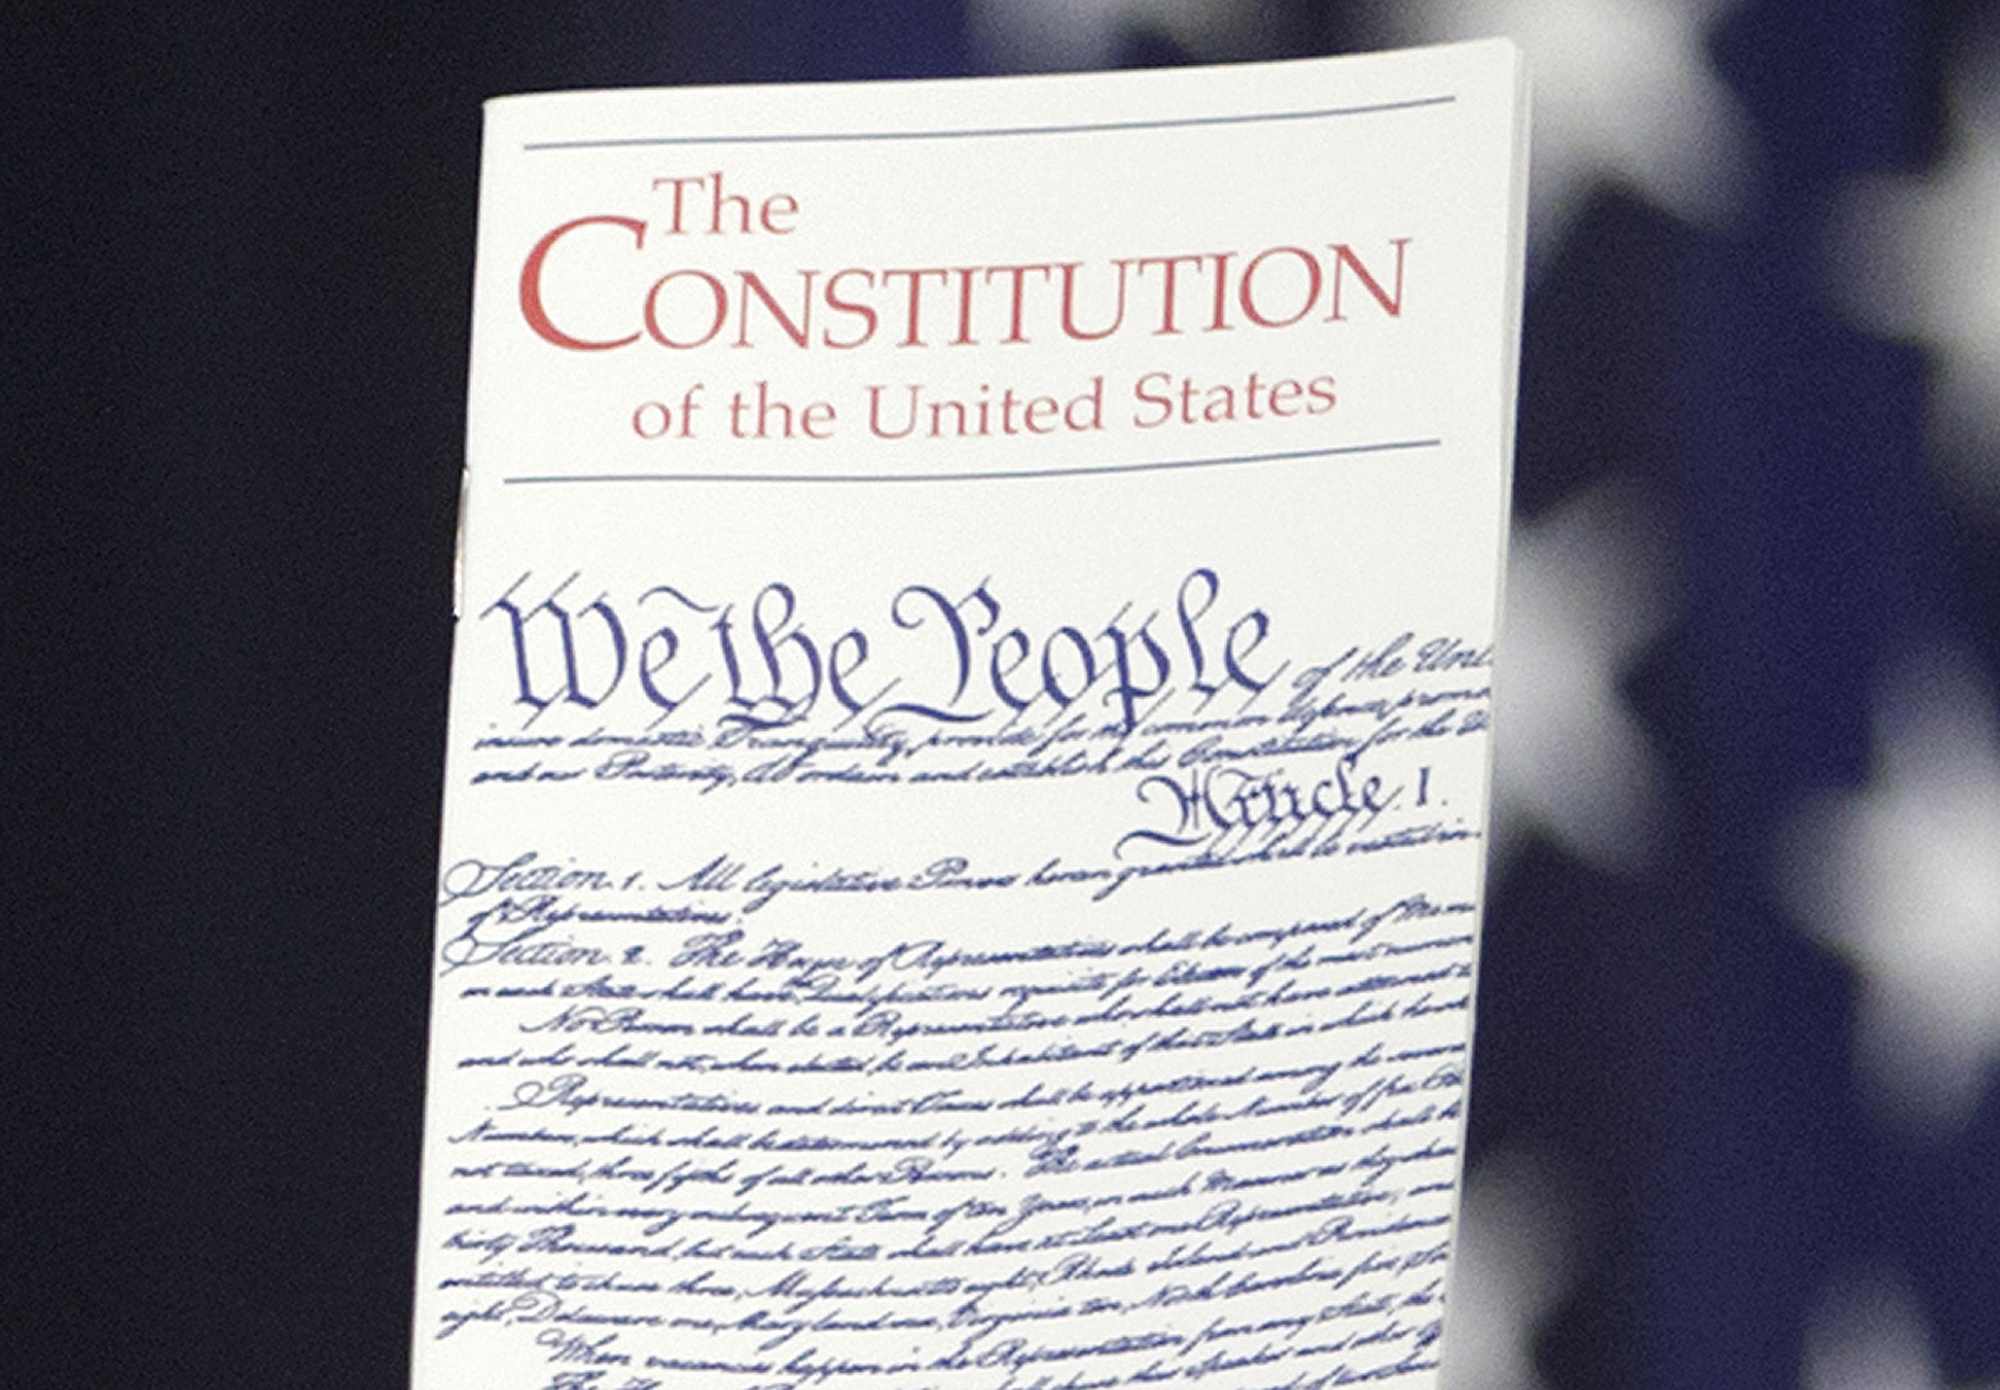 The
CONSTITUTION
of the United States
We the People of the Uni
insure domestic Tranquility, provide for the common defence, promo
and our Posterity, do ordain and establish this Constitution for the U
Article. I.
Section. 1. All legislative Powers herein granted shall be vested in
of Representatives.
Section. 2. The House of Representatives shall be composed of Mem
in each State shall have Qualifications requisite for Electors of the most numer
No Person shall be a Representative who shall not have attained t
and who shall not, when elected, be an Inhabitant of that State in which he sh
Representatives and direct Taxes shall be apportioned among the severa
Numbers, which shall be determined by adding to the whole Number of free
not taxed, three fifths of all other Persons. The actual Enumeration shall be
and within every subsequent Term of ten Years, in such Manner as they sha
thirty Thousand, but each State shall have at Least one Representative; and
entitled to chuse three, Massachusetts eight, Rhode Island and Providence
eight, Delaware one, Maryland six, Virginia ten, North Carolina five, So
When vacancies happen in the Representation from any State, the